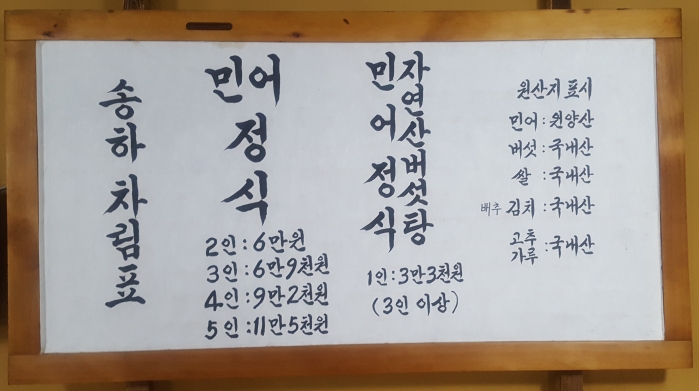 송하 차림표
민어
정식
2인 : 6만원
3인 : 6만 9천원
4인 : 9만 2천원
5인 : 11만 5천원
자연산버섯탕
민어 정식
1인 : 3만 3천원
(3인 이상)
원산지 표시
민어 : 원양산
버섯 : 국내산
쌀 : 국내산
배추 김치 : 국내산
고추
가루 : 국내산